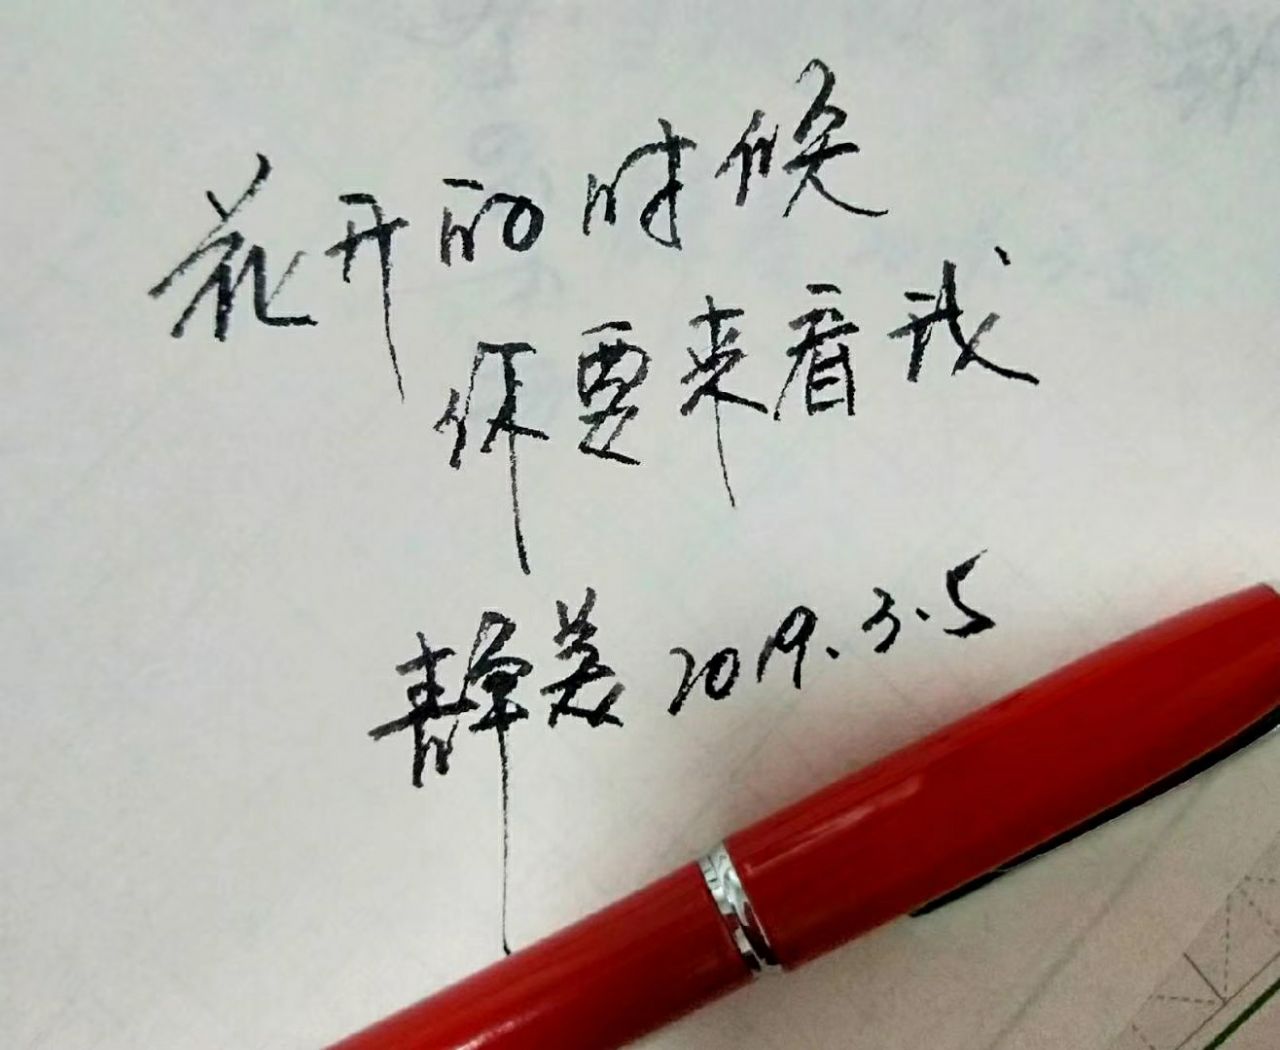 花开的时候
你要来看我
静美 2019.3.5